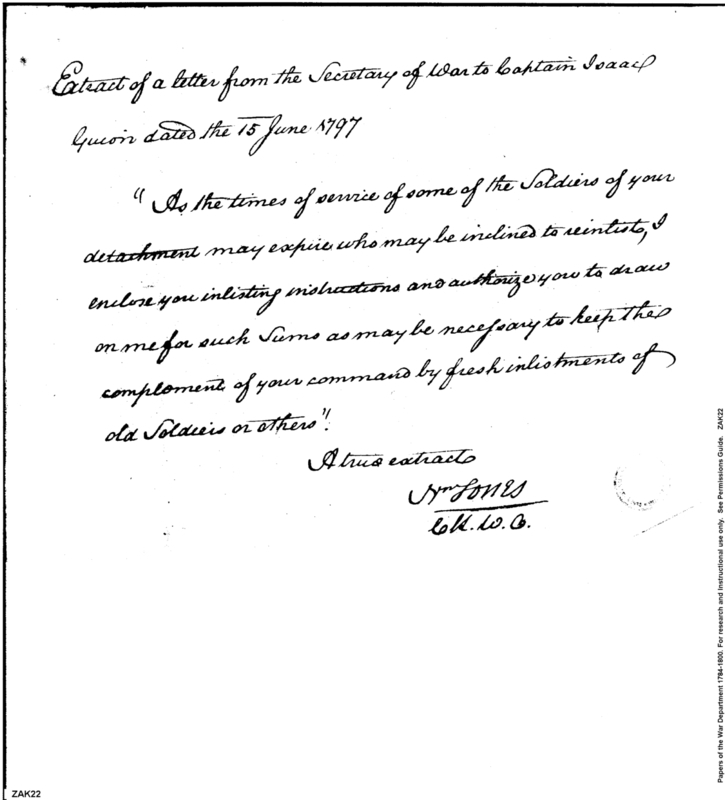 Extract of a letter from the Secretary of War to Captain Isaac
Guion dated the 15 June 1797
"As the times of service of some of the Soldiers of your
detachment may expire who may be inclined to reinlist, I
enclose you inlisting instructions and authorize you to draw
on me for such Sums as may be necessary to keep the
complement of your command by fresh inlistments of
old Soldiers or others".
A true extract
Wm Jones
Clk. W. O.
Papers of the War Department 1784-1800. For research and Instructional use only. See Permissions Guide. ZAK22
ZAK22